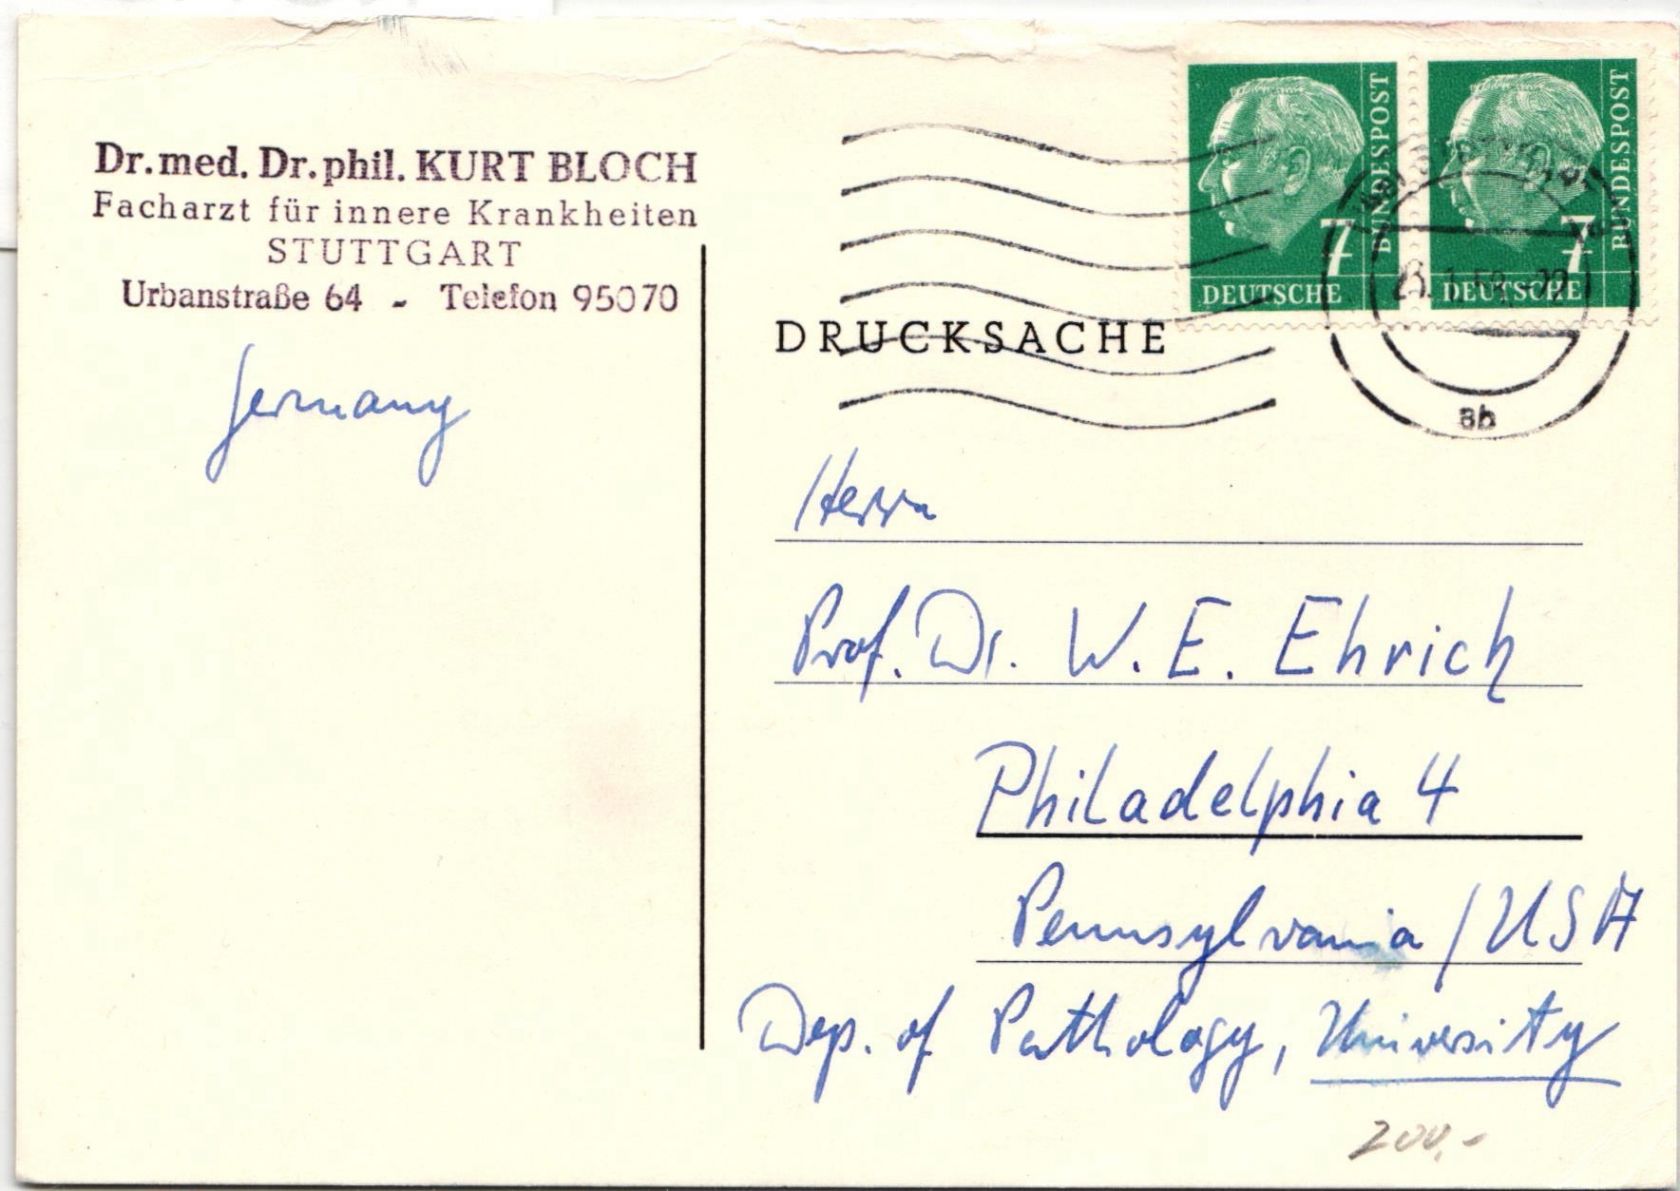 Dr. med. Dr. phil. KURT BLOCH
Facharzt für innere Krankheiten
STUTTGART
Urbanstraße 64 - Telefon 95070
Germany
7
DEUTSCHE
BUNDESPOST
7
DEUTSCHE
BUNDESPOST
ab
DRUCKSACHE
Herrn
Prof. Dr. W. E. Ehrich
Philadelphia 4
Pennsylvania / USA
Dep. of Pathology, University
200,-